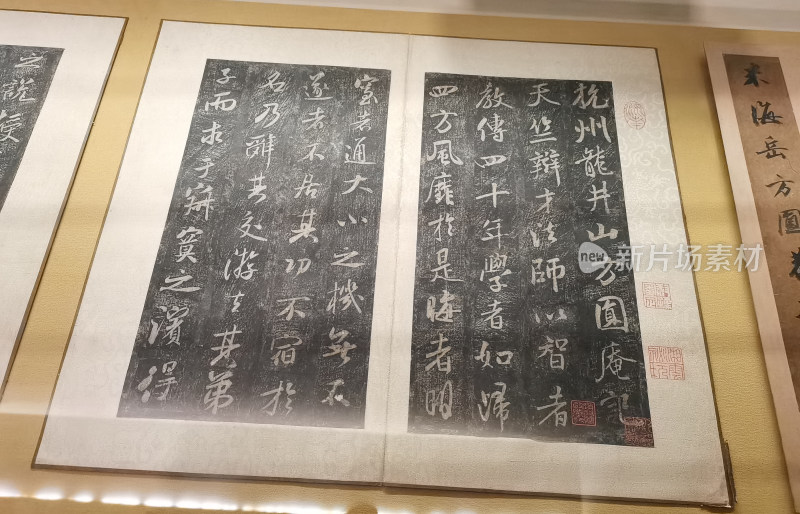 米海岳方圓
杭州龍井山方圓庵記
天竺辯才法師以智者
教傳四十年學者如歸
四方風靡於是晦者明
窒者通大小之機無不
遂者不居其功不宿於
名乃辭其交游去其弟
子而求于寂寞之濱得
之說授
new
摄图新视界